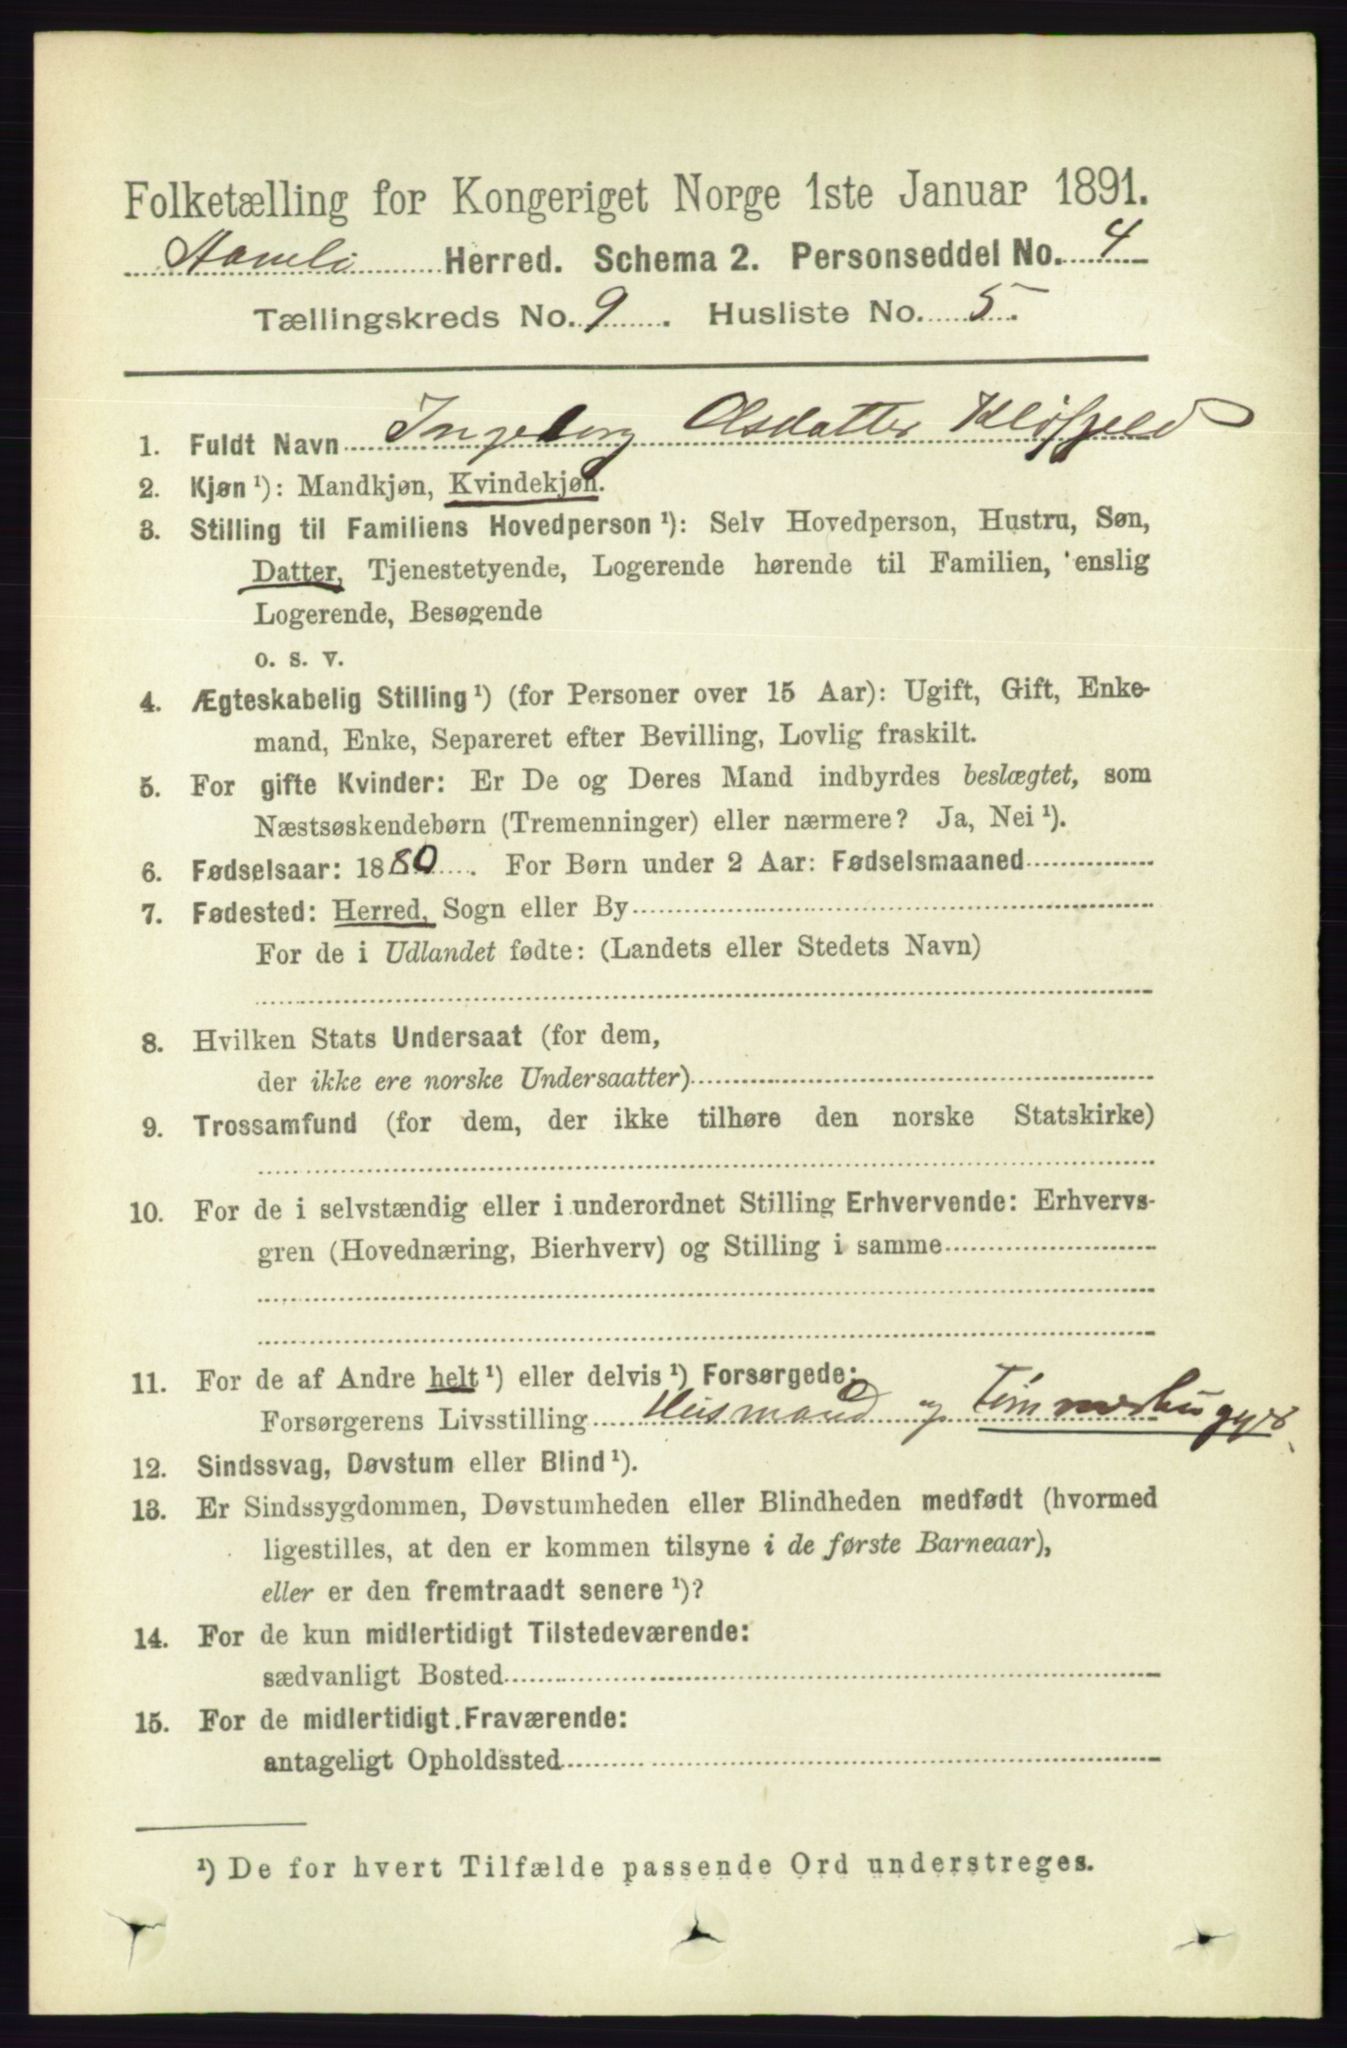 Folketælling for Kongeriget Norge 1ste Januar 1891.
Aamli Herred. Schema 2. Personseddel No. 4
Tællingskreds No. 9. Husliste No. 5.
1. Fuldt Navn Ingeborg Olsdatter Kløfjeld
2. Kjøn ¹): Mandkjøn, Kvindekjøn.
3. Stilling til Familiens Hovedperson ¹): Selv Hovedperson, Hustru, Søn,
Datter, Tjenestetyende, Logerende hørende til Familien, enslig
Logerende, Besøgende
o. s. v.
4. Ægteskabelig Stilling ¹) (for Personer over 15 Aar): Ugift, Gift, Enke-
mand, Enke, Separeret efter Bevilling, Lovlig fraskilt.
5. For gifte Kvinder: Er De og Deres Mand indbyrdes beslægtet, som
Næstsøskendebørn (Tremenninger) eller nærmere? Ja, Nei ¹).
6. Fødselsaar: 1880. For Børn under 2 Aar: Fødselsmaaned
7. Fødested: Herred, Sogn eller By
For de i Udlandet fødte: (Landets eller Stedets Navn)
8. Hvilken Stats Undersaat (for dem,
der ikke ere norske Undersaatter)
9. Trossamfund (for dem, der ikke tilhøre den norske Statskirke)
10. For de i selvstændig eller i underordnet Stilling Erhvervende: Erhvervs-
gren (Hovednæring, Bierhverv) og Stilling i samme
11. For de af Andre helt ¹) eller delvis ¹) Forsørgede:
Forsørgerens Livsstilling Husmand og Tømmerhugger
12. Sindssvag, Døvstum eller Blind ¹).
13. Er Sindssygdommen, Døvstumheden eller Blindheden medfødt (hvormed
ligestilles, at den er kommen tilsyne i de første Barneaar),
eller er den fremtraadt senere ¹)?
14. For de kun midlertidigt Tilstedeværende:
sædvanligt Bosted
15. For de midlertidigt Fraværende:
antageligt Opholdssted
¹) De for hvert Tilfælde passende Ord understreges.